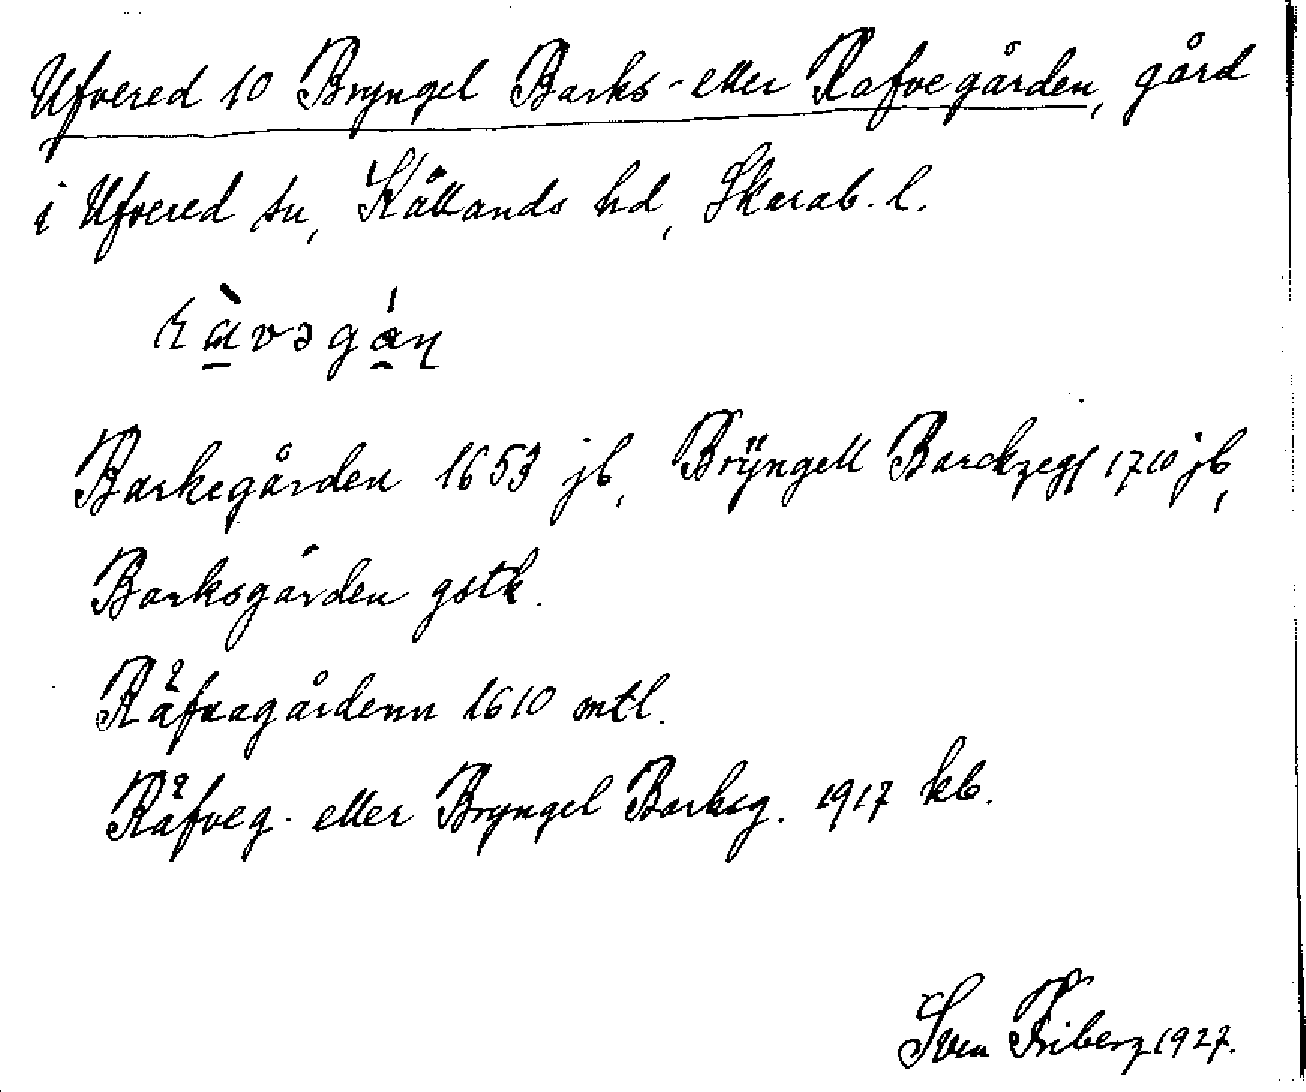 Ufvered 10 Bryngel Barks- eller Rafvegården, gård
i Ufvered sn, Kållands hd, Skarab. l.
Barkegården 1653 jb, Brÿngell Barckzegl 1710 jb,
Barksgården gstk.
Räfvagårdenn 1610 mtl.
Räfveg. eller Bryngel Barksg. 1917 kb.
Sven Friberg 1927.